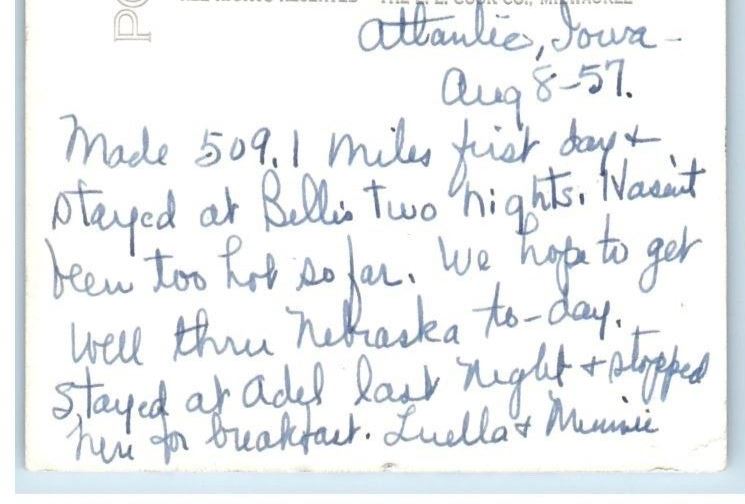 PO
ALL RIGHTS RESERVED THE L. L. COOK CO., MILWAUKEE
Atlantic, Iowa -
Aug 8-57.
Made 509.1 miles first day +
stayed at Bellis two nights. Hasn't
been too hot so far. We hope to get
well thru Nebraska to-day.
Stayed at Adel last night + stopped
here for breakfast. Luella + Minnie